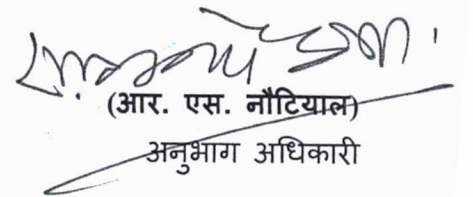 (आर. एस. नौटियाल)
अनुभाग अधिकारी